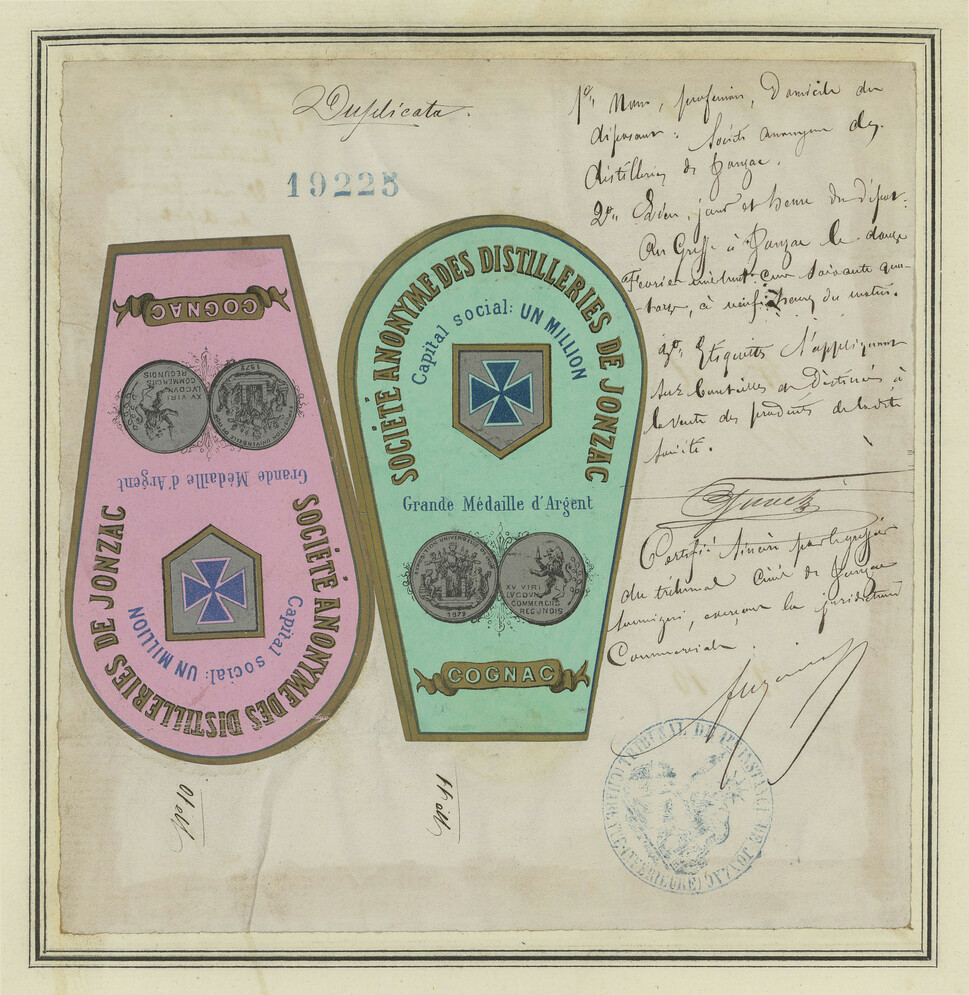 Duplicata.
19225
1º,, Nom, profession, Domicile du
déposant : Société anonyme des
distilleries de Jonzac.
2º,, Lieu, jour et heure du dépôt:
Au Greffe à Jonzac le douze
Fevrier mil huit cent soixante qua-
torze, à neuf heures du matin.
Etiquettes s'appliquant
aux bouteilles et destinées à
la vente des produits de la dite
Société.
Certifié sincère par le greffier
du tribunal Civil de Jonzac
soussigné, exerçant la juridiction
Commerciale.
COGNAC
XV VIRI
LVGDVN
COMMERCIIS
REGUNDIS
1872
Grande Médaille d'Argent
SOCIÉTÉ ANONYME DES DISTILLERIES DE JONZAC
Capital social: UN MILLION
Nº 10
SOCIÉTÉ ANONYME DES DISTILLERIES DE JONZAC
Capital social: UN MILLION
Grande Médaille d'Argent
1872
XV VIRI
LVGDVN
COMMERCIIS
REGUNDIS
COGNAC
Nº 11
TRIBUNAL DE 1RE INSTANCE DE JONZAC (CHARENTE-INFÉRIEURE)